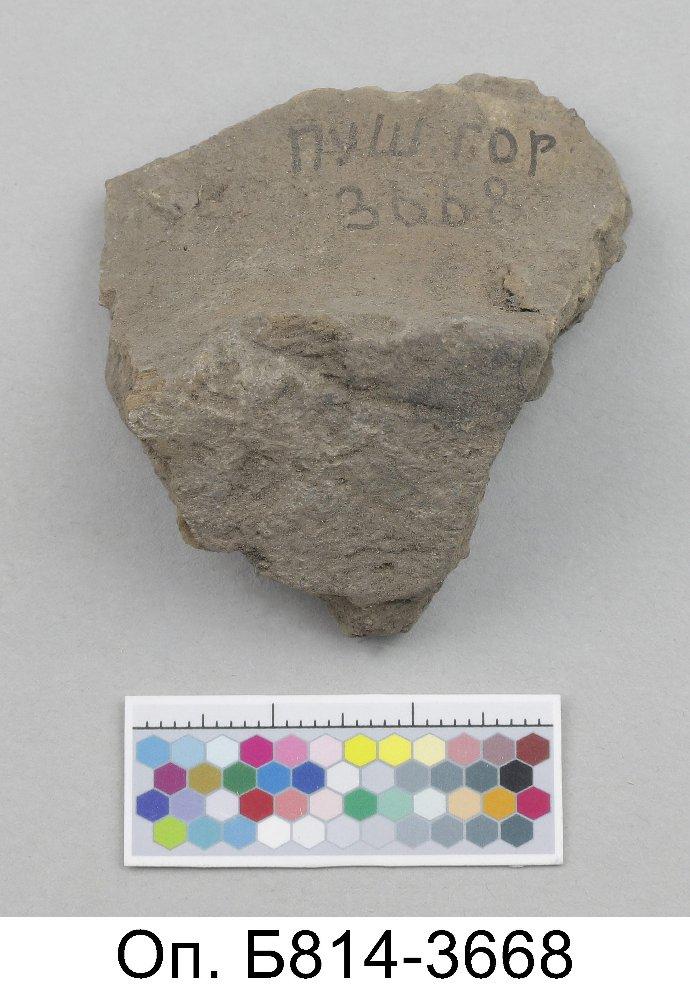 ПУШ. ГОР
3668
Оп. Б814-3668